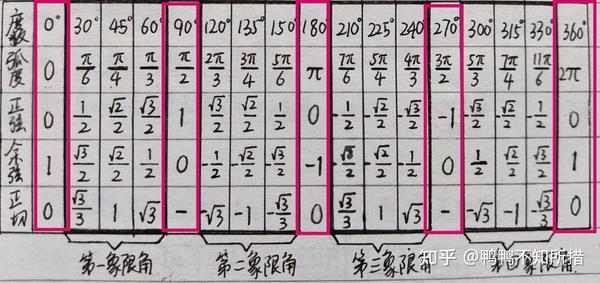 度数 0° 30° 45° 60° 90° 120° 135° 150° 180° 210° 225° 240° 270° 300° 315° 330° 360°
弧度 0 π/6 π/4 π/3 π/2 2π/3 3π/4 5π/6 π 7π/6 5π/4 4π/3 3π/2 5π/3 7π/4 11π/6 2π
正弦 0 1/2 √2/2 √3/2 1 √3/2 √2/2 1/2 0 -1/2 -√2/2 -√3/2 -1 -√3/2 -√2/2 -1/2 0
余弦 1 √3/2 √2/2 1/2 0 -1/2 -√2/2 -√3/2 -1 -√3/2 -√2/2 -1/2 0 1/2 √2/2 √3/2 1
正切 0 √3/3 1 √3 - -√3 -1 -√3/3 0 √3/3 1 √3 - -√3 -1 -√3/3 0
第一象限角 第二象限角 第三象限角 第四象限角
知乎 @鸭鸭不知所措